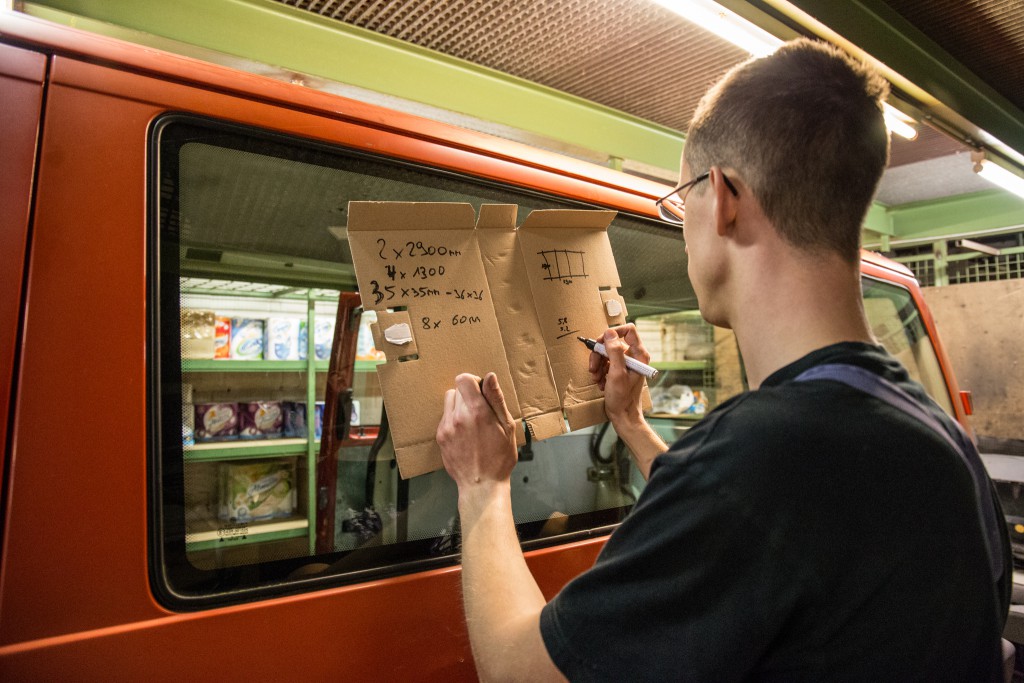 2 x 2900mm
4 x 1300
35 x 35mm - 36 x 36
8 x 60m